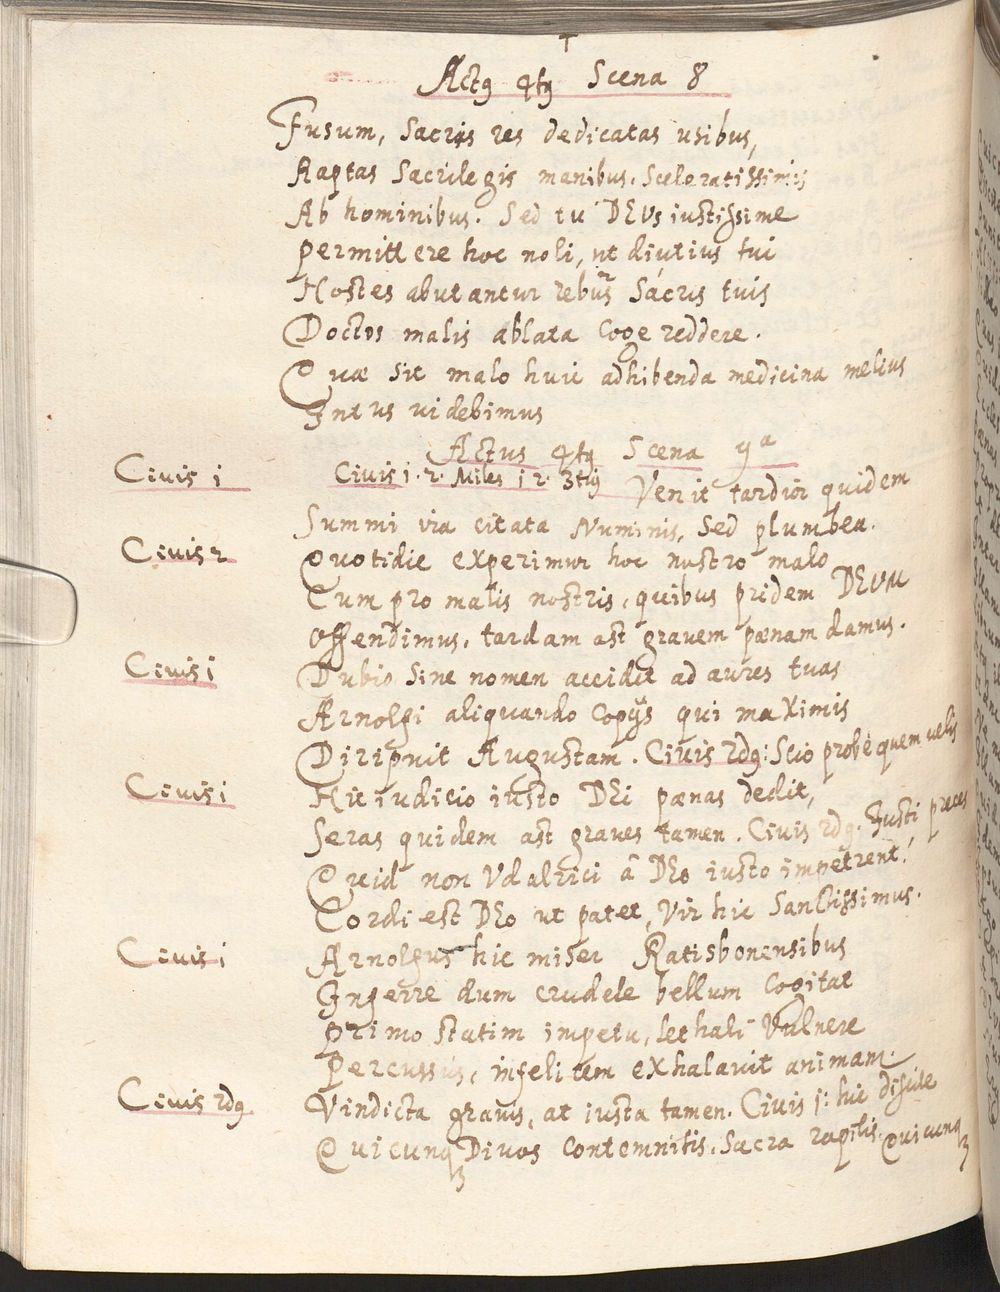 Actꝯ 4tꝯ Scena 8
Fusum, sacris res dedicatas usibus,
Raptas sacrilegis manibus, sceleratissimis
Ab hominibus. Sed tu DEVs iustissime
Permittere hoc noli, ut diutius tui
Hostes abutantur rebus sacris tuis
Doctos malis ablata coge reddere.
Quæ sit malo huic adhibenda medicina melius
Intus uidebimus
Actus 4tꝯ Scena 9a
Civis 1 Civis 1. 2. Miles 1 2. 3tiꝯ Venit tardior quidem
Summi via citata Numinis, sed plumbea.
Civis 2 Quotidie experimur hoc nostro malo
Cum pro malis nostris, quibus pridem DEVM
Offendimus, tardam ast grauem pænam damus.
Civis 1 Dubio sine nomen accidit ad aures tuas
Arnolfi aliquando copijs qui maximis
Diripuit Augustam. Civis 2dꝯ: Scio probè quem uelis
Civis 1 Hic iudicio iusto DEi pænas dedit,
Seras quidem ast graues tamen. Civis 2dꝯ. Iusti preces
Quid non Vdalrici â DEo iusto impetrent!
Cordi est DEo ut patet, Vir hic Sanctissimus.
Civis 1 Arnolfus hic miser Ratisbonensibus
Inferre dum crudele bellum cogitat
Primo statim impetu, lethali Vulnere
Percussus, infelicem exhalauit animam.
Civis 2dꝯ Vindicta grauis, at iusta tamen. Civis 1: hic discite
Quicunqꝫ Diuos contemnitis, sacra rapitis. Quicunqꝫ